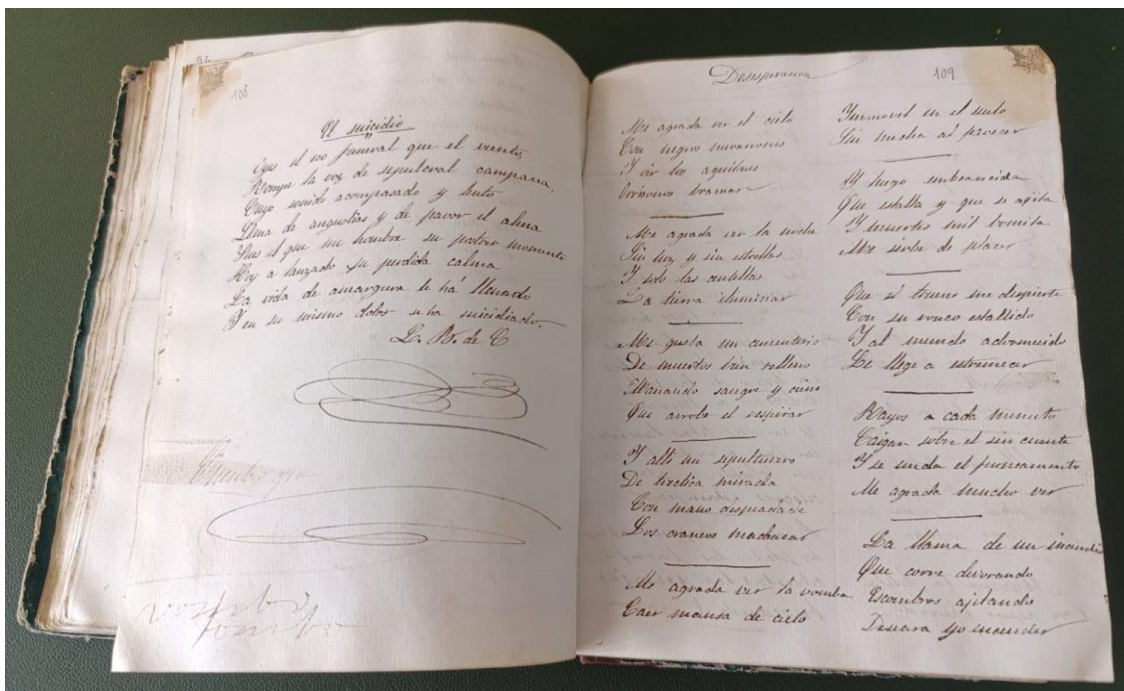 108
El suicidio
Que el eco funeral que el viento,
Rompe la voz de sepulcral campana,
Cuyo sonido acompasado y lento
Llena de angustias y de pavor el alma
Es el que un hombre su postrer momento
Hoy a lanzado su perdida calma
La vida de amargura le há llenado
Y en su mismo dolor se ha suicidiado.
L. B. de C
109
Desesperacion
Me agrada ver el cielo
Con negros nuvarrones
Y oir los aquilones
Orrisonos bramar
Me agrada ver la noche
Sin luz y sin estrellas
Y solo las centellas
La tierra iluminar
Me gusta un cementerio
De muertos bien relleno
Manando sangre y cieno
Que arrobe el respirar
Y alli un sepulturero
De tretica mirada
Con mano despiadada
Los craneos machacar
Me agrada ver la vomba
Caer mansa de cielo
Ynmovil en el suelo
Sin mecha al parecer
Y luego embravecida
Que estalla y que se agita
Y muertes mil bomita
Me sirve de placer
Que el trueno me despierte
Con su ronco estallido
Y al mundo adormecido
Le llege a estremecer
Rayos a cada minuto
Caigan sobre el sin cuento
Y se unda el
Me agrada mucho ver
La llama de un incendio
Que corre devorando
Escombros ajitando
Deseara yo encender